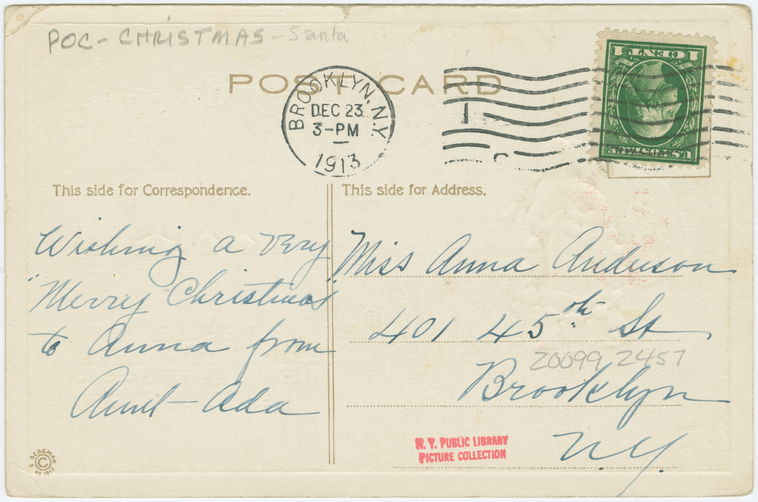 POC - CHRISTMAS - Santa
POST CARD
BROOKLYN, N.Y.
DEC 23
3-PM
1913
1 CENT 1
U.S. POSTAGE
This side for Correspondence.
This side for Address.
Wishing a Very
"Merry Christmas"
to Anna from
Aunt - Ada
Miss Anna Anderson
401 45th St
20099 2457
Brooklyn
NY
N. Y. PUBLIC LIBRARY
PICTURE COLLECTION
BERGMAN
©